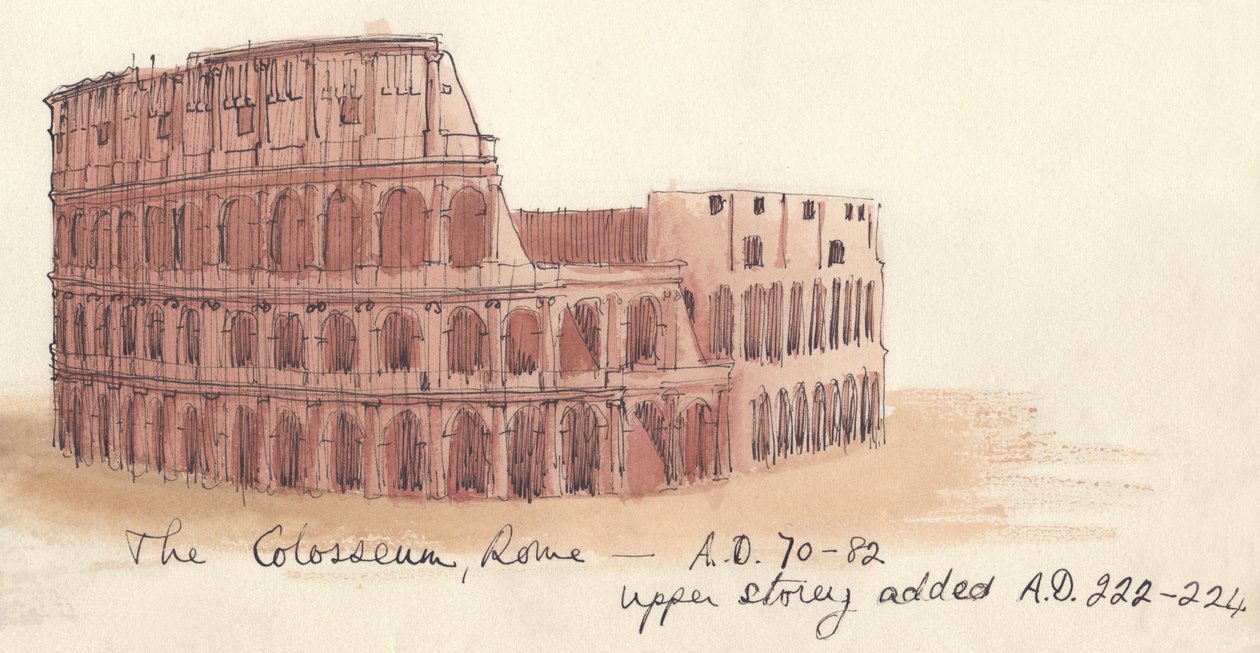 The Colosseum, Rome — A.D. 70-82
upper storey added A.D. 222-224